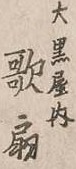 大黒屋内
歌扇